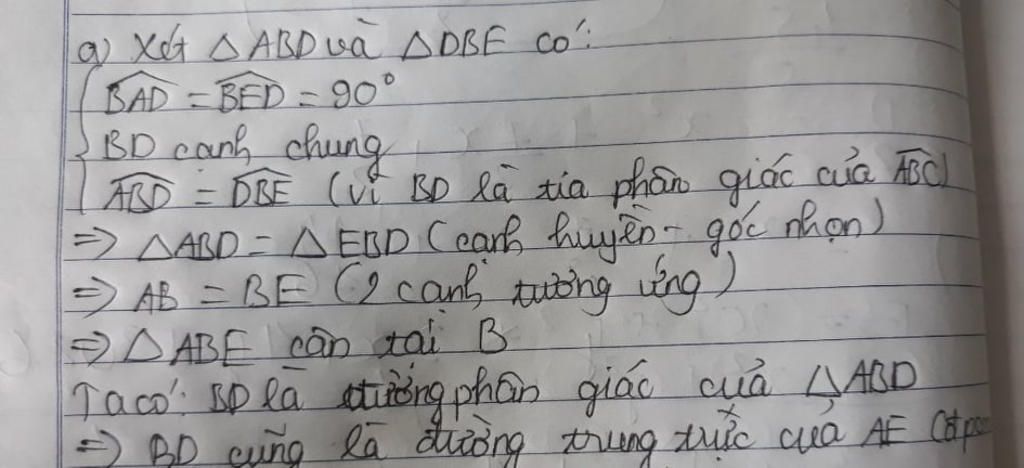 a) Xét △ABD và △DBE có:
BAD = BED = 90°
BD cạnh chung
ABD = DBE (vì BD là tia phân giác của ABC)
=> △ABD = △EBD (cạnh huyền - góc nhọn)
=> AB = BE (2 cạnh tương ứng)
=> △ABE cân tại B
Ta có: BD là đường phân giác của △ABD
=> BD cũng là đường trung trực của AE